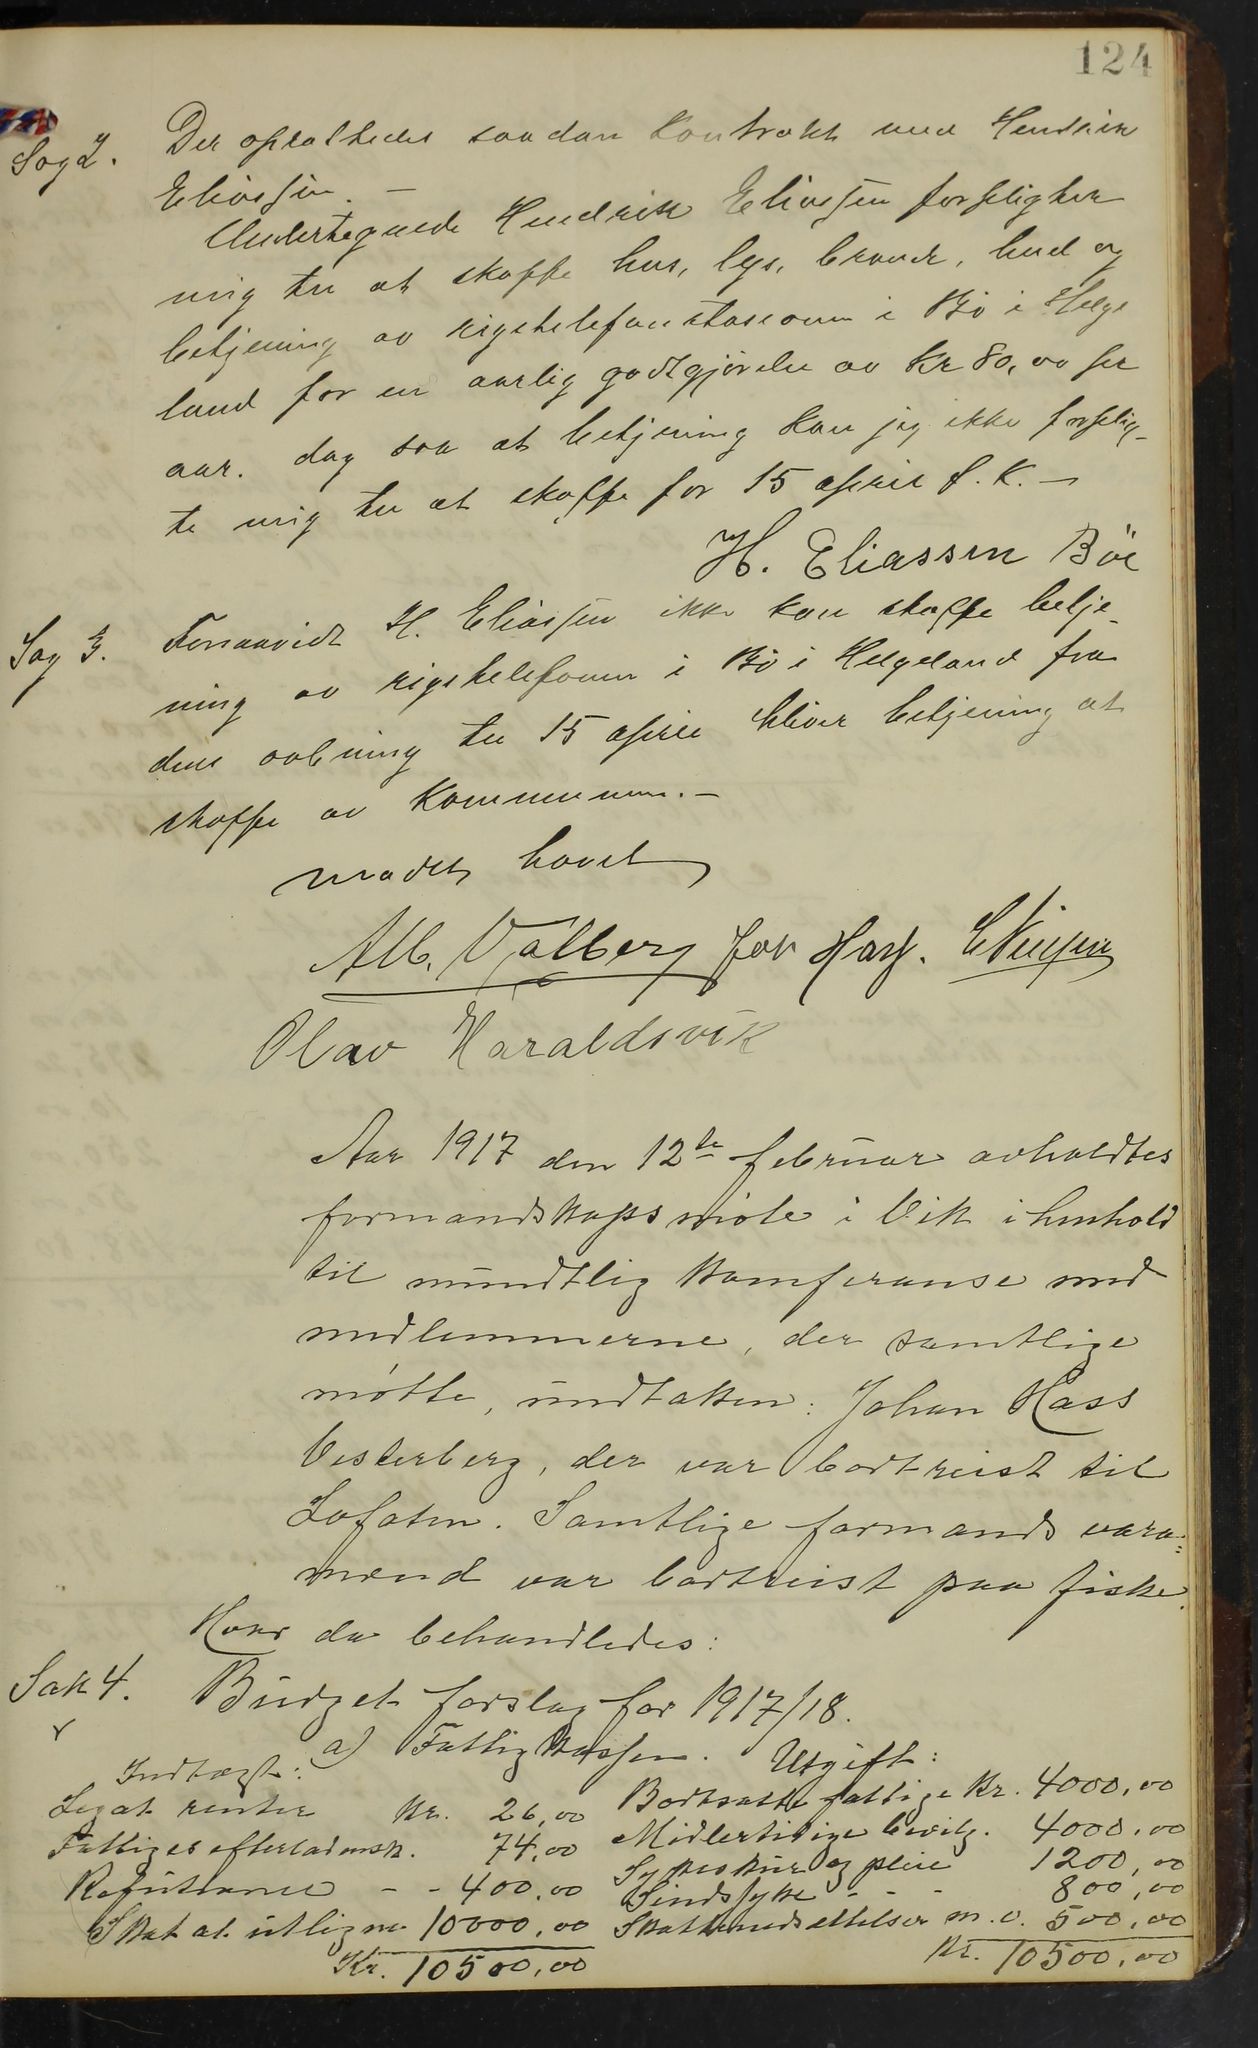 124
Sag 2. Der oprettedes saadan Kontrakt med Hendrik
Eliassen. —
Undertegnede Hendrik Eliassen forpligter
mig til at skaffe hus, lys, brænde, bud og
betjening av rigstelefonstasionen i Bø i Helge
land for en aarlig godtgjørelse av Kr 80,00 per
aar. dog saa at betjening kan jeg ikke forplig-
te mig til at skaffe før 15 april f. K. —
H. Eliassen Böe
Sag 3. Forsaavidt H. Eliassen ikke kan skaffe betje-
ning av rigstelefonen i Bø i Helgeland fra
dens aabning til 15 april bliver betjening at
skaffe av Kommunen. —
mødet hævet
Alb. Valberg for Harf.
Olav Haraldsvik
Aar 1917 den 12te februar avholdtes
formandskapsmøte i Vik i henhold
til mundtlig Konferanse med
medlemmerne, der samtlige
møtte, undtaken: Johan Hass
Vesterberg, der var bortreist til
Lofoten. Samtlige formænds vara=
mænd var bortreist paa fiske.
Hvor da behandledes:
Sak 4. Budget forslag for 1917/18.
a) Fattigkassen.
Indtægt: Utgift:
Legat renter Kr. 26,00 Bortsatte fattige Kr. 4000,00
Fattiges efterladensk. 74,00 Midlertidige bevilg. 4000,00
Refusioner - - 400,00 Sykeskur og pleie 1200,00
Skat at utligne 10000,00 Sindssyke - - - 800,00
Kr. 10500,00 Skattenedsættelser m.v. 500,00
Kr. 10500,00